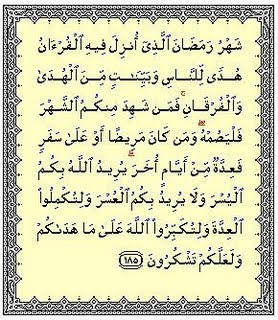 شَهْرُ رَمَضَانَ ٱلَّذِىٓ أُنزِلَ فِيهِ ٱلْقُرْءَانُ
هُدًى لِّلنَّاسِ وَبَيِّنَـٰتٍ مِّنَ ٱلْهُدَىٰ
وَٱلْفُرْقَانِ ۚ فَمَن شَهِدَ مِنكُمُ ٱلشَّهْرَ
فَلْيَصُمْهُ ۖ وَمَن كَانَ مَرِيضًا أَوْ عَلَىٰ سَفَرٍ
فَعِدَّةٌ مِّنْ أَيَّامٍ أُخَرَ ۗ يُرِيدُ ٱللَّهُ بِكُمُ
ٱلْيُسْرَ وَلَا يُرِيدُ بِكُمُ ٱلْعُسْرَ وَلِتُكْمِلُوا۟
ٱلْعِدَّةَ وَلِتُكَبِّرُوا۟ ٱللَّهَ عَلَىٰ مَا هَدَىٰكُمْ
وَلَعَلَّكُمْ تَشْكُرُونَ ١٨٥